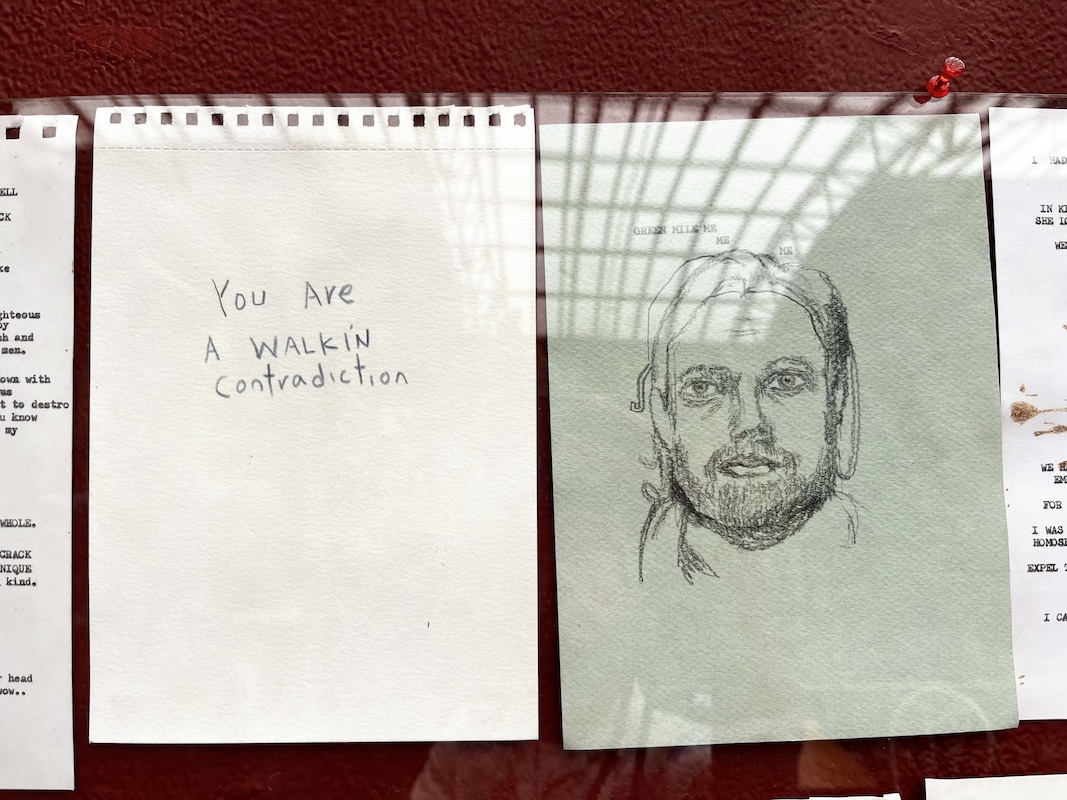 ELL
CK
ke
ghteous
oy
sh and
men.
own with
us
t to destro
u know
my
WHOLE.
CRACK
NIQUE
kind.
r head
wow..
You Are
A WALKIN
Contradiction
GREEN MILE ME
ME
ME
I HAD
IN K
SHE LO
WE
WE H
EM
FOR
I WAS
HOMOSE
EXPEL T
I CA